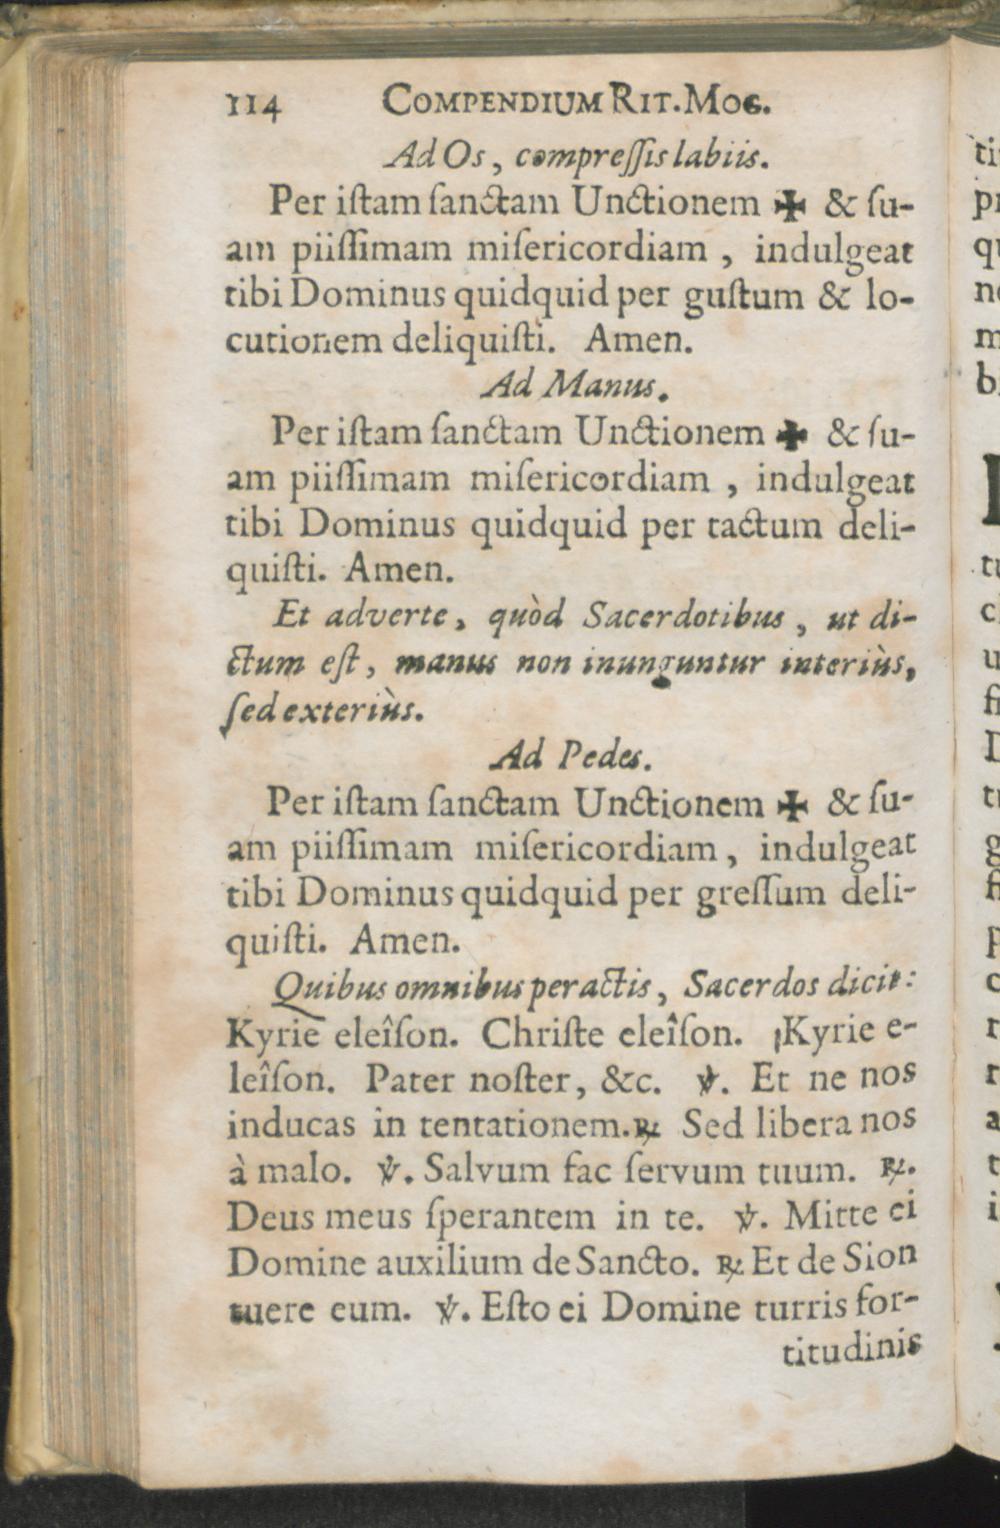 114 COMPENDIUM RIT. MOG.
Ad Os, compreſſis labiis.
Per iſtam ſanctam Unctionem ✠ & ſu-
am piiſſimam miſericordiam, indulgeat
tibi Dominus quidquid per guſtum & lo-
cutionem deliquiſti. Amen.
Ad Manus.
Per iſtam ſanctam Unctionem ✠ & ſu-
am piiſſimam miſericordiam, indulgeat
tibi Dominus quidquid per tactum deli-
quiſti. Amen.
Et adverte, quòd Sacerdotibus, ut di-
ctum eſt, manus non inunguntur interiùs,
ſed exteriùs.
Ad Pedes.
Per iſtam ſanctam Unctionem ✠ & ſu-
am piiſſimam miſericordiam, indulgeat
tibi Dominus quidquid per greſſum deli-
quiſti. Amen.
Quibus omnibus peractis, Sacerdos dicit:
Kyrie eleîſon. Chriſte eleîſon. Kyrie e-
leîſon. Pater noſter, &c. ℣. Et ne nos
inducas in tentationem. ℞ Sed libera nos
à malo. ℣. Salvum fac ſervum tuum. ℞.
Deus meus ſperantem in te. ℣. Mitte ei
Domine auxilium de Sancto. ℞ Et de Sion
tuere eum. ℣. Eſto ei Domine turris for-
titudinis